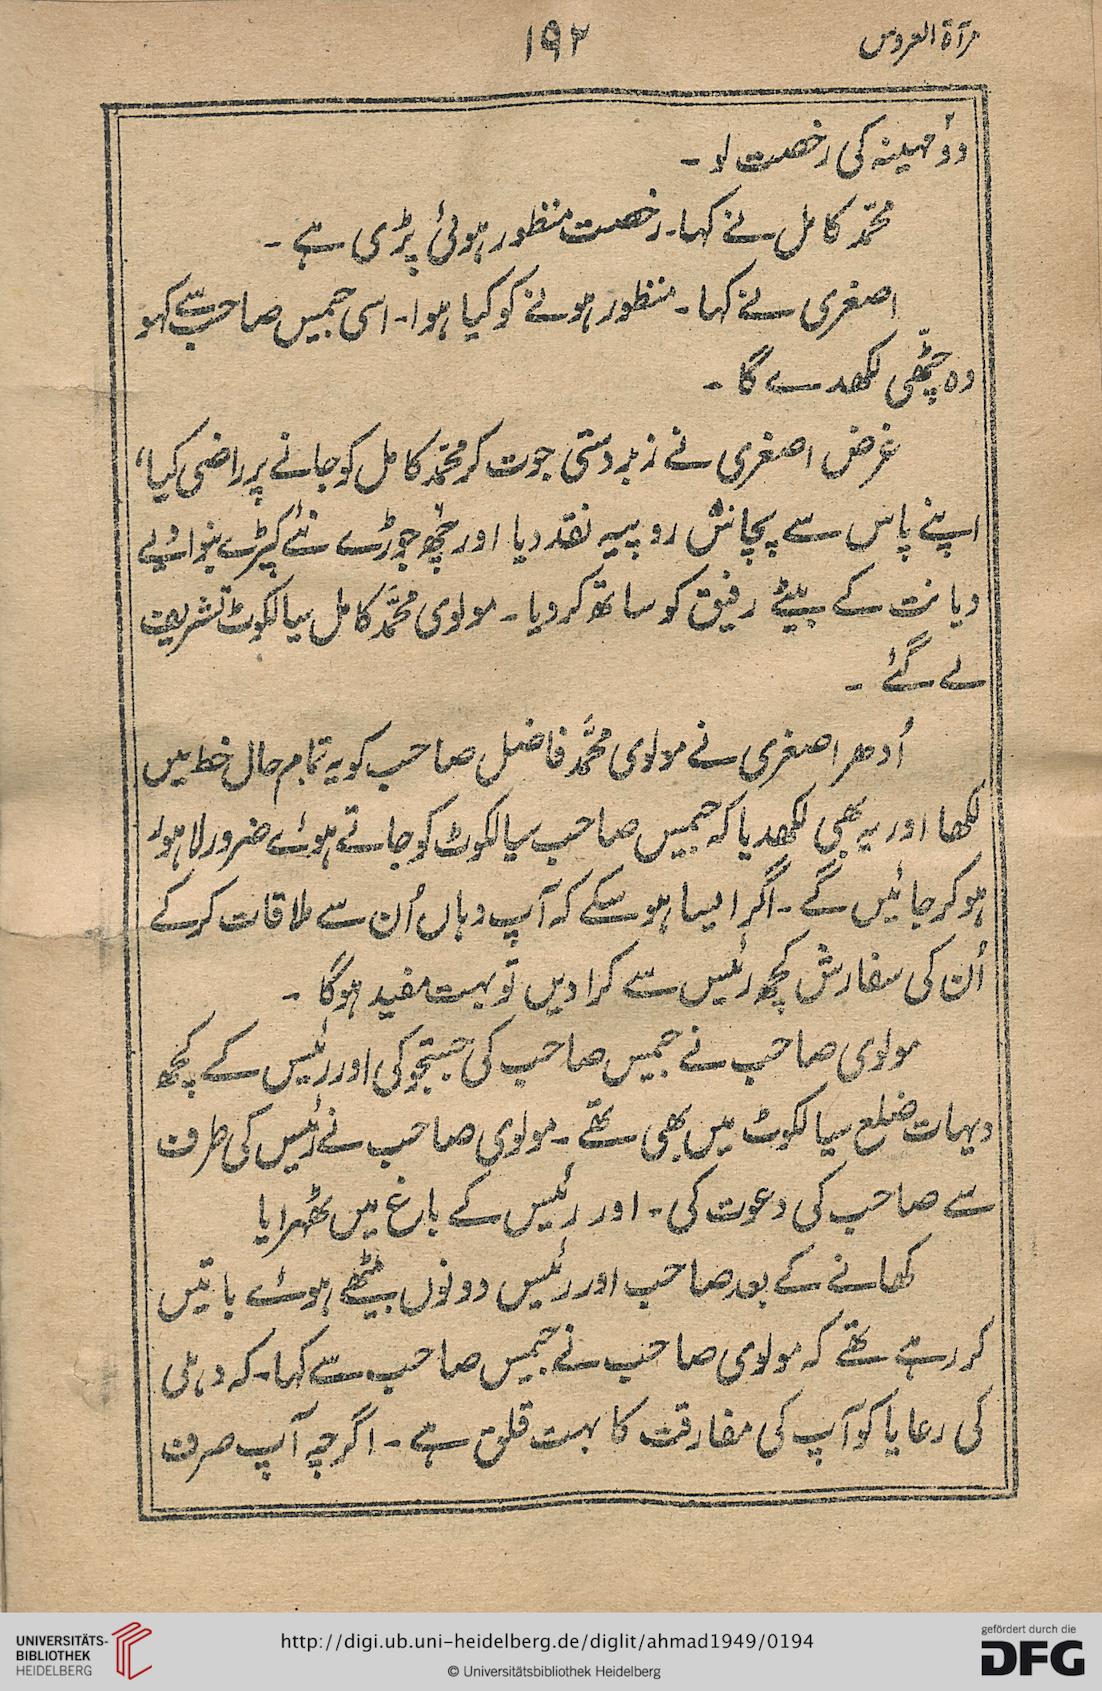 مرآۃ العروس
۱۹۲
دو مہینہ کی رخصت لو۔
محمّد کامل نے کہا۔ رخصت منظور ہوئی پڑی ہے۔
اصغری نے کہا۔ منظور ہونے کو کیا ہوا۔ اسی جمیس صاحب سے کہو
وہ چٹھی لکھدے گا۔
غرض اصغری نے زبردستی جوت کر محمّد کامل کو جانے پر راضی کیا،
اپنے پاس سے پچاس روپیہ نقد دیا اور چھ جوڑے نئے کپڑے بنوا دیے
دیانت کے بیٹے رفیق کو ساتھ کر دیا۔ مولوی محمّد کامل سیالکوٹ تشریف
لے گئے۔
اُدھر اصغری نے مولوی محمّد فاضل صاحب کو یہ تمام حال خط میں
لکھا اور یہ بھی لکھدیا کہ جمیس صاحب سیالکوٹ کو جاتے ہوئے ضرور لاہور
ہو کر جائیں گے۔ اگر ایسا ہو سکے کہ آپ وہاں اُن سے ملاقات کر کے
اُن کی سفارش کچھ رئیس سے کرا دیں تو بہت مفید ہوگا۔
مولوی صاحب نے جمیس صاحب کی جستجو کی اور رئیس کے کچھ
دیہات ضلع سیالکوٹ میں بھی تھے۔ مولوی صاحب نے رئیس کی طرف
سے صاحب کی دعوت کی۔ اور رئیس کے باغ میں ٹھہرایا
کھانے کے بعد صاحب اور رئیس دونوں بیٹھے ہوئے باتیں
کر رہے تھے کہ مولوی صاحب نے جمیس صاحب سے کہا۔ کہ دہلی
کی رعایا کو آپ کی مفارقت کا بہت قلق ہے۔ اگرچہ آپ صرف
UNIVERSITÄTS-
BIBLIOTHEK
HEIDELBERG
http://digi.ub.uni-heidelberg.de/diglit/ahmad1949/0194
© Universitätsbibliothek Heidelberg
gefördert durch die
DFG